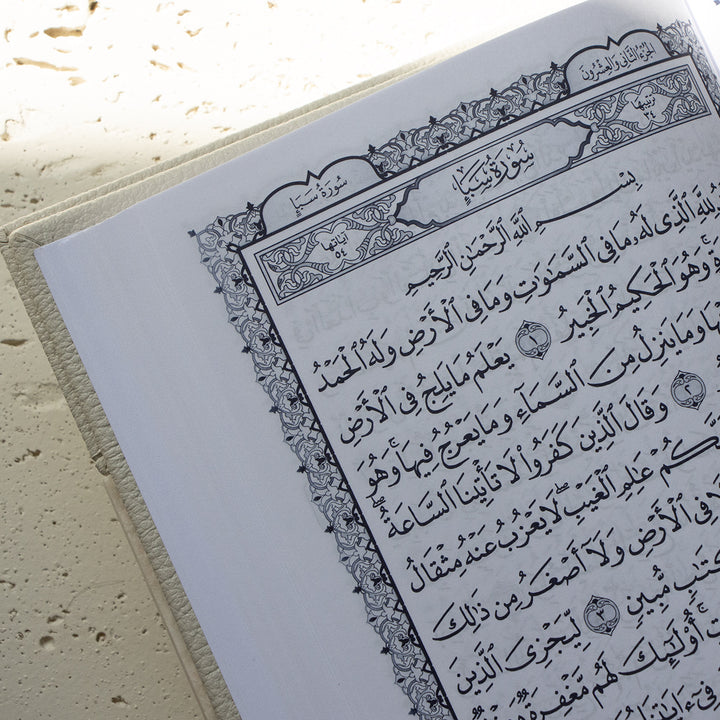 الجزء الثاني والعشرون
سورة سبإ
ترتيبها ٣٤
سُورَةُ سَبَإٍ
آياتها ٥٤
بِسْمِ ٱللَّهِ ٱلرَّحْمَٰنِ ٱلرَّحِيمِ
ٱلَّذِى لَهُۥ مَا فِى ٱلسَّمَٰوَٰتِ وَمَا فِى ٱلْأَرْضِ وَلَهُ ٱلْحَمْدُ
وَهُوَ ٱلْحَكِيمُ ٱلْخَبِيرُ ١ يَعْلَمُ مَا يَلِجُ فِى ٱلْأَرْضِ
وَمَا يَنزِلُ مِنَ ٱلسَّمَآءِ وَمَا يَعْرُجُ فِيهَا ۚ وَهُوَ
٢ وَقَالَ ٱلَّذِينَ كَفَرُوا۟ لَا تَأْتِينَا ٱلسَّاعَةُ ۖ
عَٰلِمِ ٱلْغَيْبِ ۖ لَا يَعْزُبُ عَنْهُ مِثْقَالُ
فِى ٱلْأَرْضِ وَلَآ أَصْغَرُ مِن ذَٰلِكَ
مُّبِينٍ ٣ لِّيَجْزِىَ ٱلَّذِينَ
أُو۟لَٰٓئِكَ لَهُم مَّغْفِرَةٌ